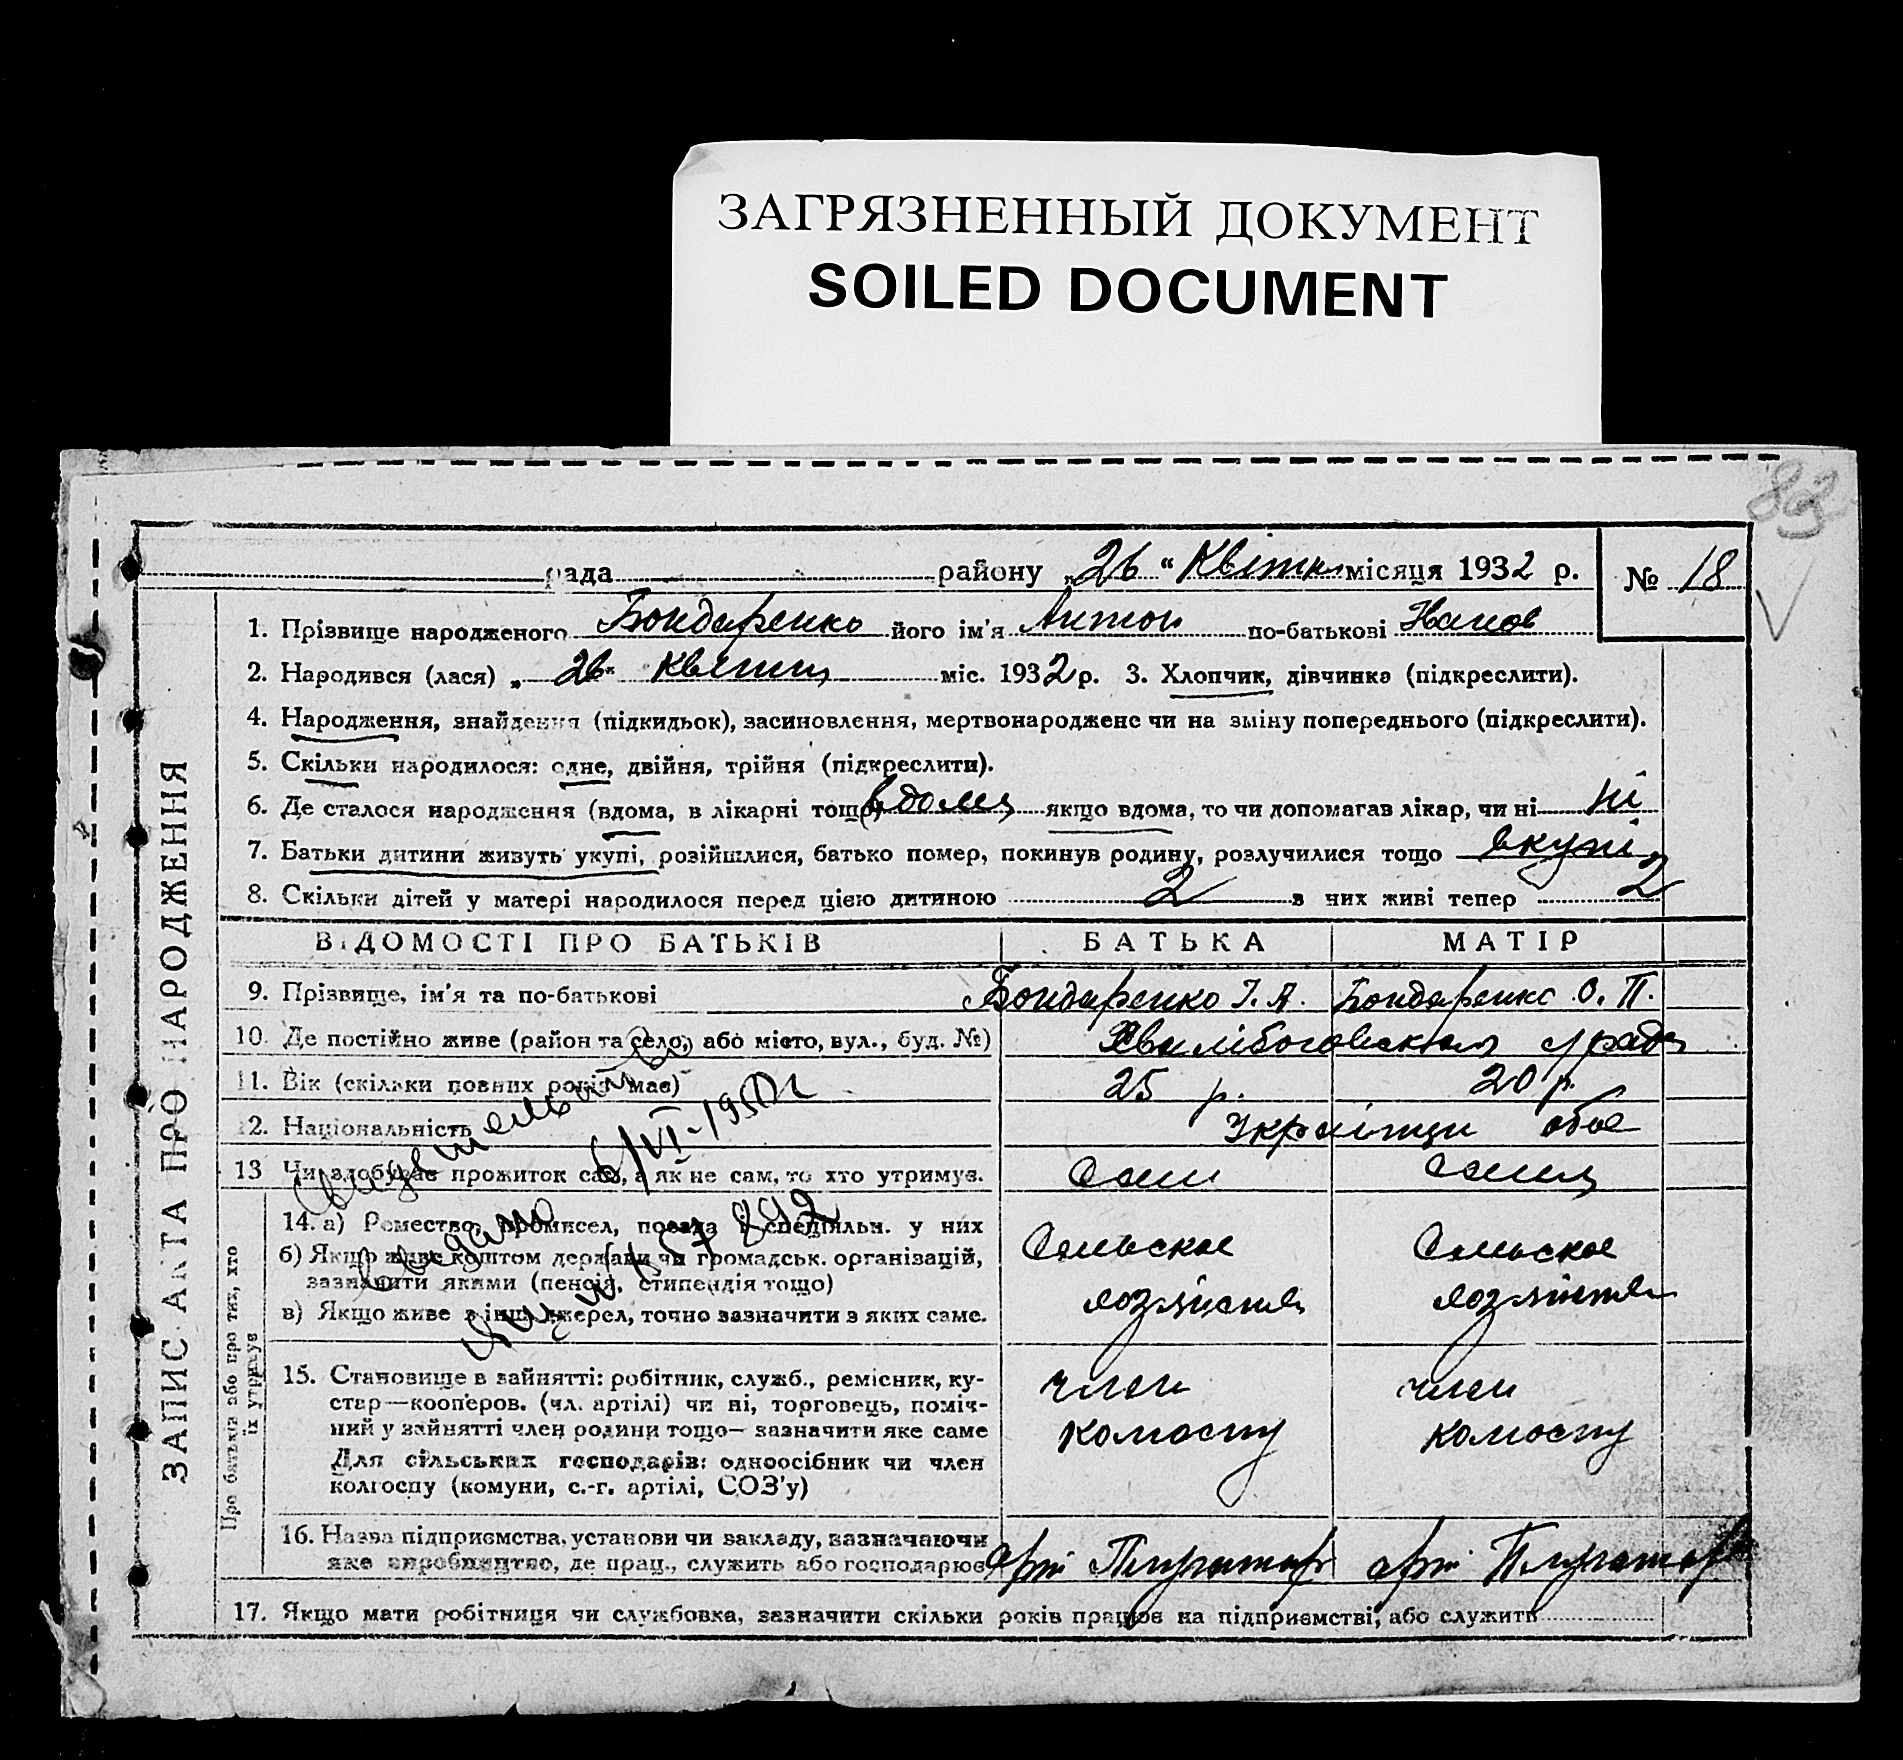 ЗАГРЯЗНЕННЫЙ ДОКУМЕНТ
SOILED DOCUMENT
83
рада районy „26“ Квітня місяця 1932 р. № 18
1. Прізвище народженого Бондаренко його ім'я Антон по-батькові
2. Народився (лася) „26“ квітня міс. 1932 р. 3. Хлопчик, дівчинка (підкреслити).
4. Народження, знайдення (підкидьок), засиновлення, мертвонароджене чи на зміну попереднього (підкреслити).
5. Скільки народилося: одне, двійня, трійня (підкреслити).
6. Де сталося народження (вдома, в лікарні тощо) вдома якщо вдома, то чи допомагав лікар, чи ні ні
7. Батьки дитини живуть укупі, розійшлися, батько помер, покинув родину, розлучилися тощо вкупі
8. Скільки дітей у матері народилося перед цією дитиною 2 з них живі тепер 2
ВІДОМОСТІ ПРО БАТЬКІВ БАТЬКА МАТІР
9. Прізвище, ім'я та по-батькові Бондаренко І. А. Бондаренко О. П.
10. Де постійно живе (район та село, або місто, вул., буд. №)
11. Вік (скільки повних років має) 25 р. 20 р.
12. Національність Українци обое
13 Чи здобуває прожиток сам, а як не сам, то хто утримує. Сам Сама
14. а) Ремество, промисел, посада і спеціяльн. у них
б) Якщо живе коштом держави чи громадськ. організацій,
зазначити якими (пенсія, стипендія тощо)
в) Якщо живе з інш. джерел, точно зазначити з яких саме.
Сельское Сельское
хозяйство хозяйство
15. Становище в зайнятті: робітник, служб., ремісник, ку-
стар—кооперов. (чл. артілі) чи ні, торговець, поміч-
ний у зайнятті член родини тощо— зазначити яке саме
Для сільських господарів: одноосібник чи член
колгоспу (комуни, с.-г. артілі, СОЗ'у)
член член
колгоспу колгоспу
16. Назва підприємства, установи чи закладу, зазначаючи
яке виробництво, де прац., служить або господарює
17. Якщо мати робітниця чи службовка, зазначити скільки років працює на підприємстві, або служить
ЗАПИС АКТА ПРО НАРОДЖЕННЯ
Про батьків або про тих, хто
їх утримує
Свидетельство
выдано 6/VI-1950 г
57892